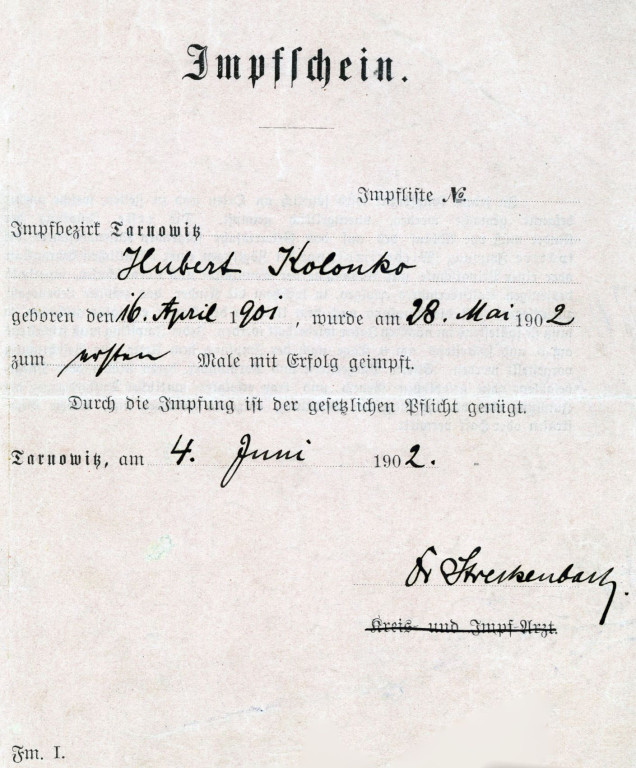 Impfschein.
Impfliste №
Impfbezirk Tarnowitz
Hubert Kolonko
geboren den 16. April 1901, wurde am 28. Mai 1902
zum ersten Male mit Erfolg geimpft.
Durch die Impfung ist der gesetzlichen Pflicht genügt.
Tarnowitz, am 4. Juni 1902.
Dr Streckenbach.
Kreis- und Impf-Arzt.
Fm. I.